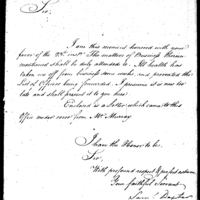 Sir,
I am this moment honored with your
favor of the 22d inst. The matters of Business therein
mentioned shall be duly attended to. Ill health has
taken me off from business some weeks, and prevented the
List of Officers being forwarded. I presume it is now too
late and shall present it to you here.
Enclosed is a Letter which came to this
Office under cover from Mr. Murray
I have the Honor to be.
Sir,
With profound respect & perfect esteem
Your faithful Servant